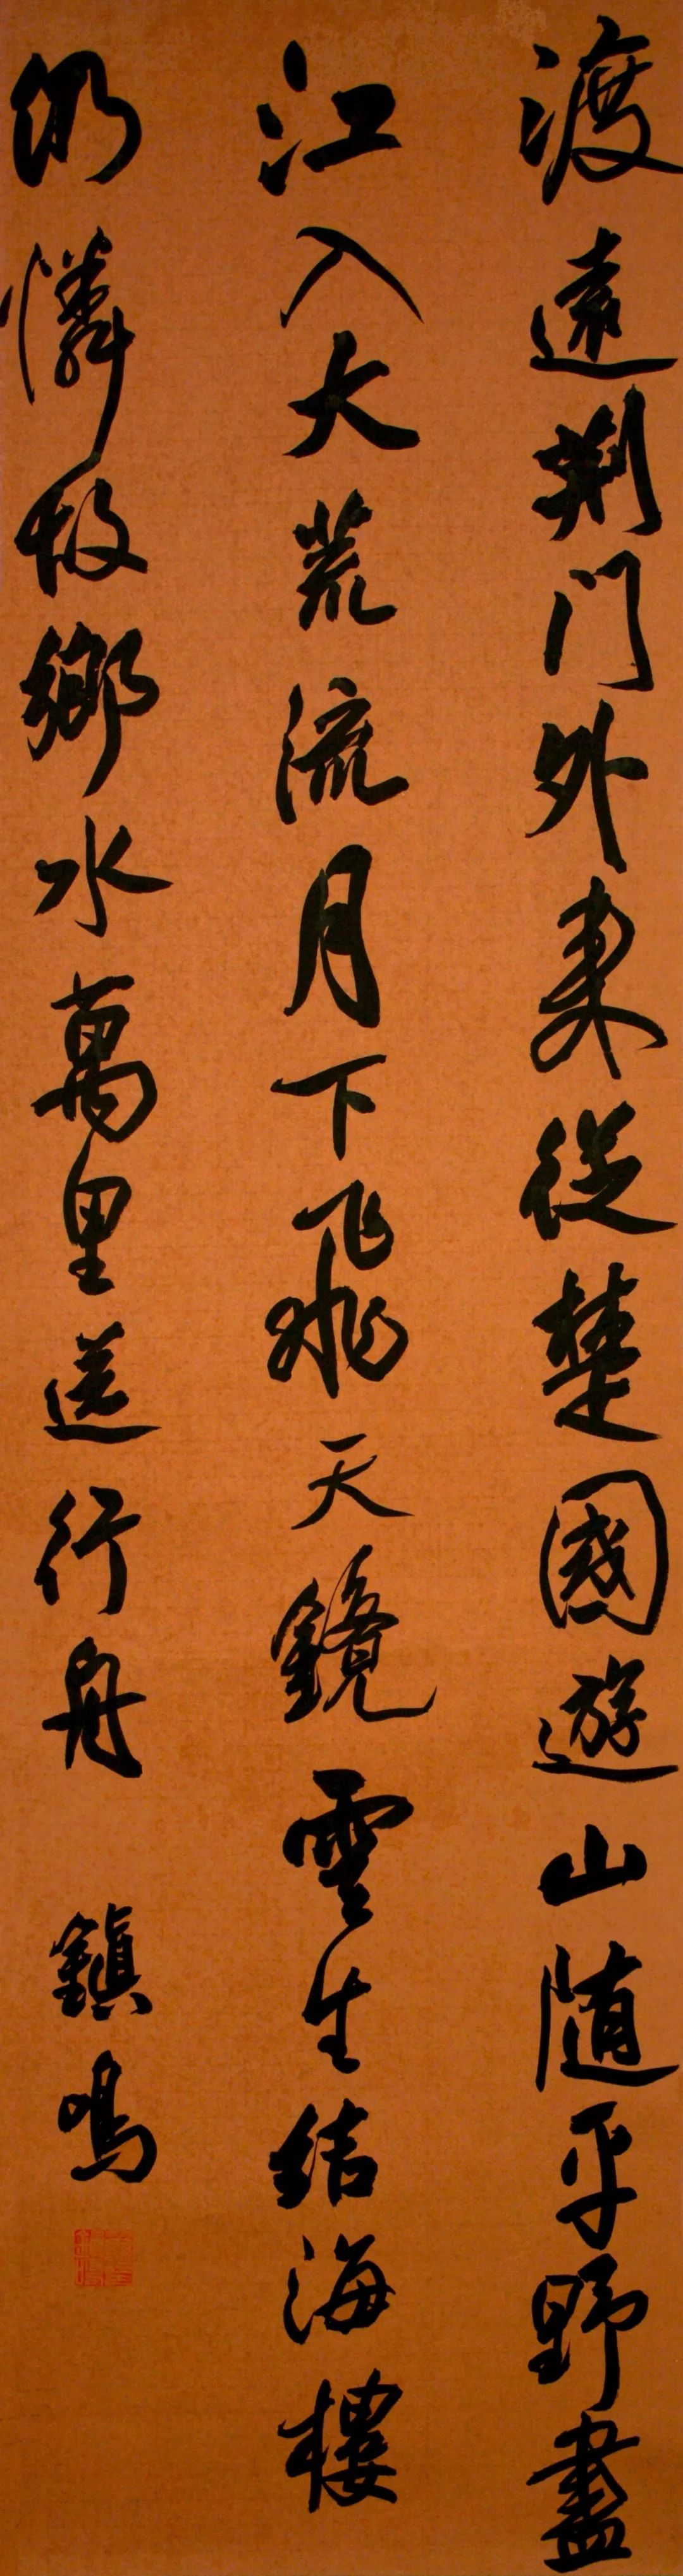 渡遠荆門外来從楚國遊山随平野盡
江入大荒流月下飛天鏡雲生結海樓
仍憐故鄉水萬里送行舟 鎮鳴